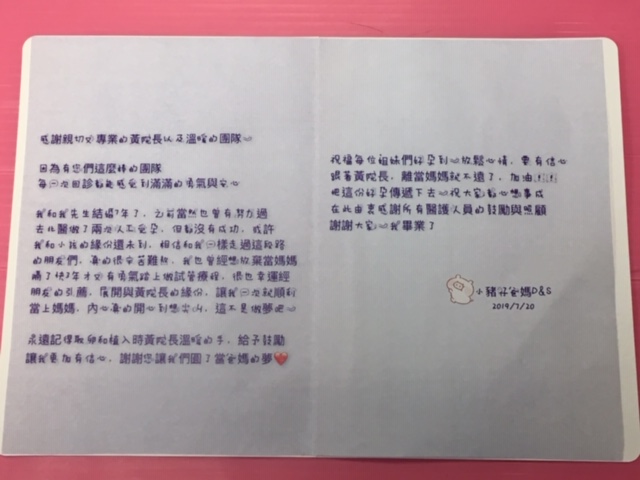 感謝親切又專業的黃院長以及溫暖的團隊
因為有您們這麼棒的團隊
每一次回診都能感受到滿滿的勇氣與安心
我和我先生結婚7年了，之前當然也曾有努力過
去北醫做了兩次人工受孕，但都沒有成功，或許
我和小孩的緣份還未到，相信和我一樣走過這段路
的朋友們，真的很辛苦難熬，我也曾經想放棄當媽媽
隔了快7年才又有勇氣踏上做試管療程，很也幸運經
朋友的引薦，展開與黃院長的緣份，讓我一次就順利
當上媽媽，內心真的開心到想尖叫，這不是做夢吧
永遠記得取卵和植入時黃院長溫暖的手，給予鼓勵
讓我更加有信心，謝謝您讓我們圓了當爸媽的夢❤
祝福每位姐妹們好孕到 放鬆心情，要有信心
跟著黃院長，離當媽媽就不遠了，加油
把這份好孕傳遞下去 祝大家都心想事成
在此由衷感謝所有醫護人員的鼓勵與照顧
謝謝大家 我畢業了
小豬仔爸媽D&S
2019/7/20